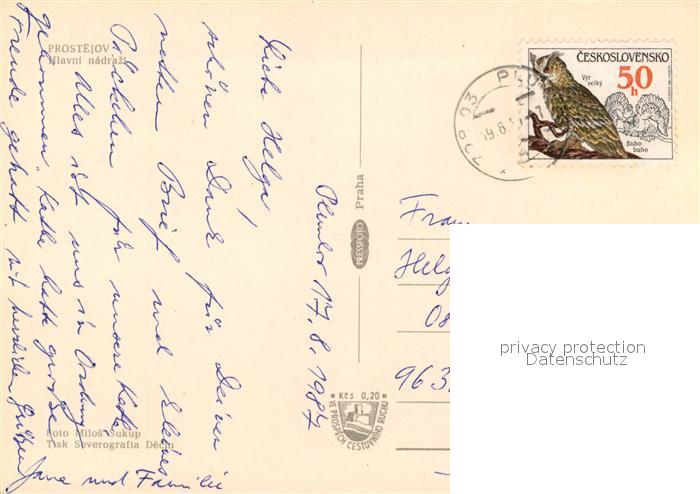 PROSTĚJOV
Hlavní nádraží
Plumlov 17.8.1987
Liebe Helga,
schönen Dank für Deinen
netten Brief und kleines
Päckchen für unsere Katka.
Alles ist uns in Ordnung
gekommen, Katka hatte große
Freude gehabt. Mit herzlichen Grüßen
Jana und Familie
Foto Miloš Sukup
Tisk Severografia Děčín
PRESSFOTO Praha
Kčs 0,20
VE PROSPĚCH CESTOVNÍHO RUCHU
ČESKOSLOVENSKO
Výr
velký
50
h
Bubo
bubo
798 03
19.8.
Frau
Helg
08
963
privacy protection
Datenschutz